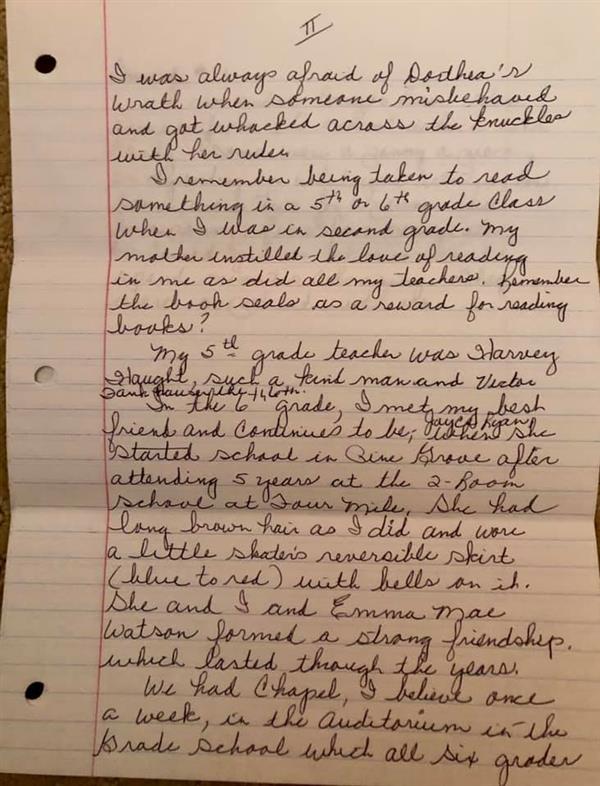 II
I was always afraid of Dorthea's
wrath when someone misbehaved
and got whacked across the knuckles
with her ruler.
I remember being taken to read
something in a 5th or 6th grade class
when I was in second grade. My
mother instilled the love of reading
in me as did all my teachers. Remember
the book seals as a reward for reading
books?
My 5th grade teacher was Harvey
Haught, such a kind man and Victor
the 6th.
In the 6 grade, I met my best
Joyce Ryan
friend and continues to be, when she
started school in Pine Grove after
attending 5 years at the 2-Room
school at Four Mile. She had
long brown hair as I did and wore
a little skater's reversible skirt
(blue to red) with bells on it.
She and I and Emma Mae
Watson formed a strong friendship.
which lasted through the years.
We had Chapel, I believe once
a week, in the auditorium in the
Grade School which all six grades